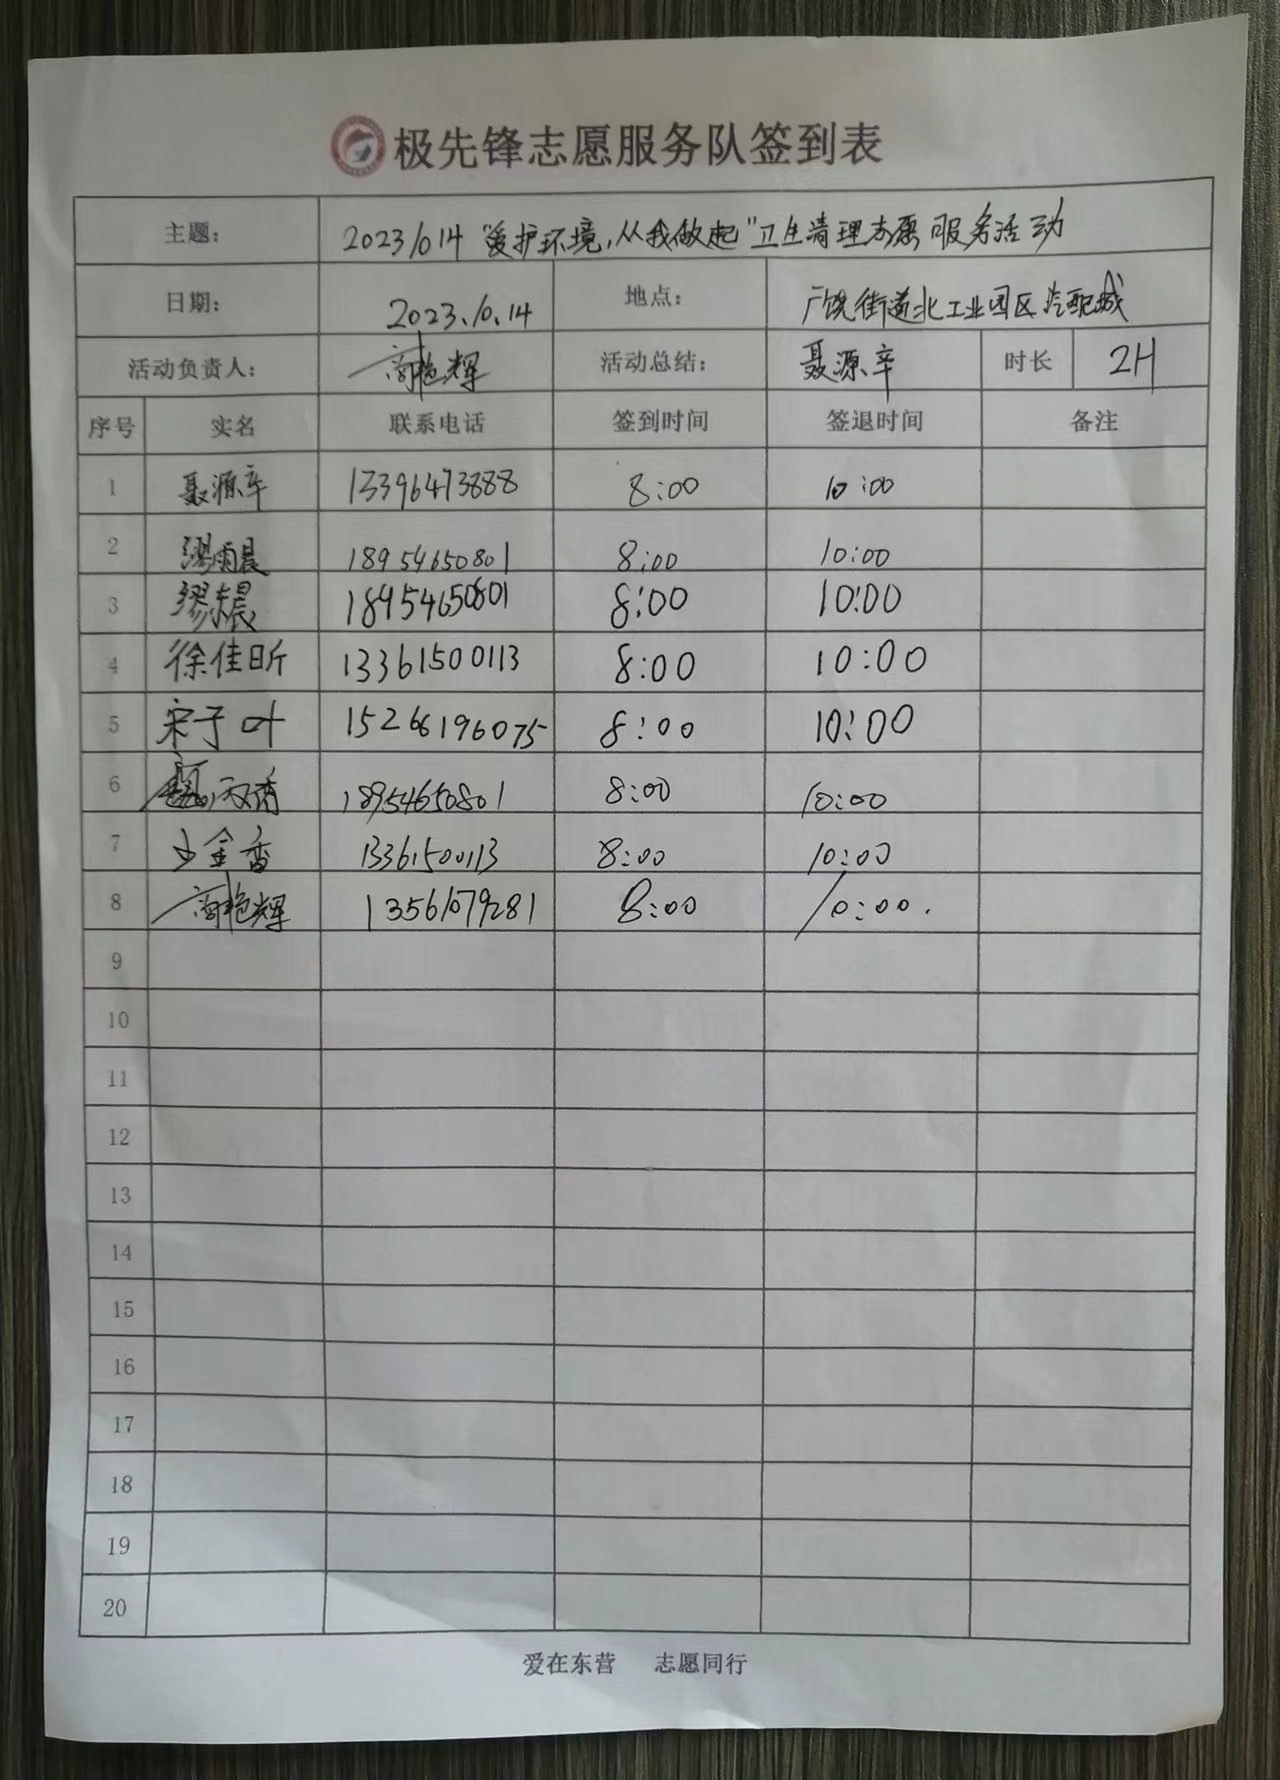 极先锋志愿服务队签到表
主题： 2023.10.14 "爱护环境，从我做起"卫生清理志愿服务活动
日期： 2023.10.14 地点： 广饶街道北工业园区汽配城
活动负责人： 商艳辉 活动总结： 聂源辛 时长 2H
序号 实名 联系电话 签到时间 签退时间 备注
1 聂源辛 13396473888 8:00 10:00
2 缪雨晨 18954650801 8:00 10:00
3 缪东晨 18954650801 8:00 10:00
4 徐佳昕 13361500113 8:00 10:00
5 宋子叶 15266196075 8:00 10:00
6 18954650801 8:00 10:00
7 金香 13361500113 8:00 10:00
8 商艳辉 13561079281 8:00 10:00.
9
10
11
12
13
14
15
16
17
18
19
20
爱在东营 志愿同行